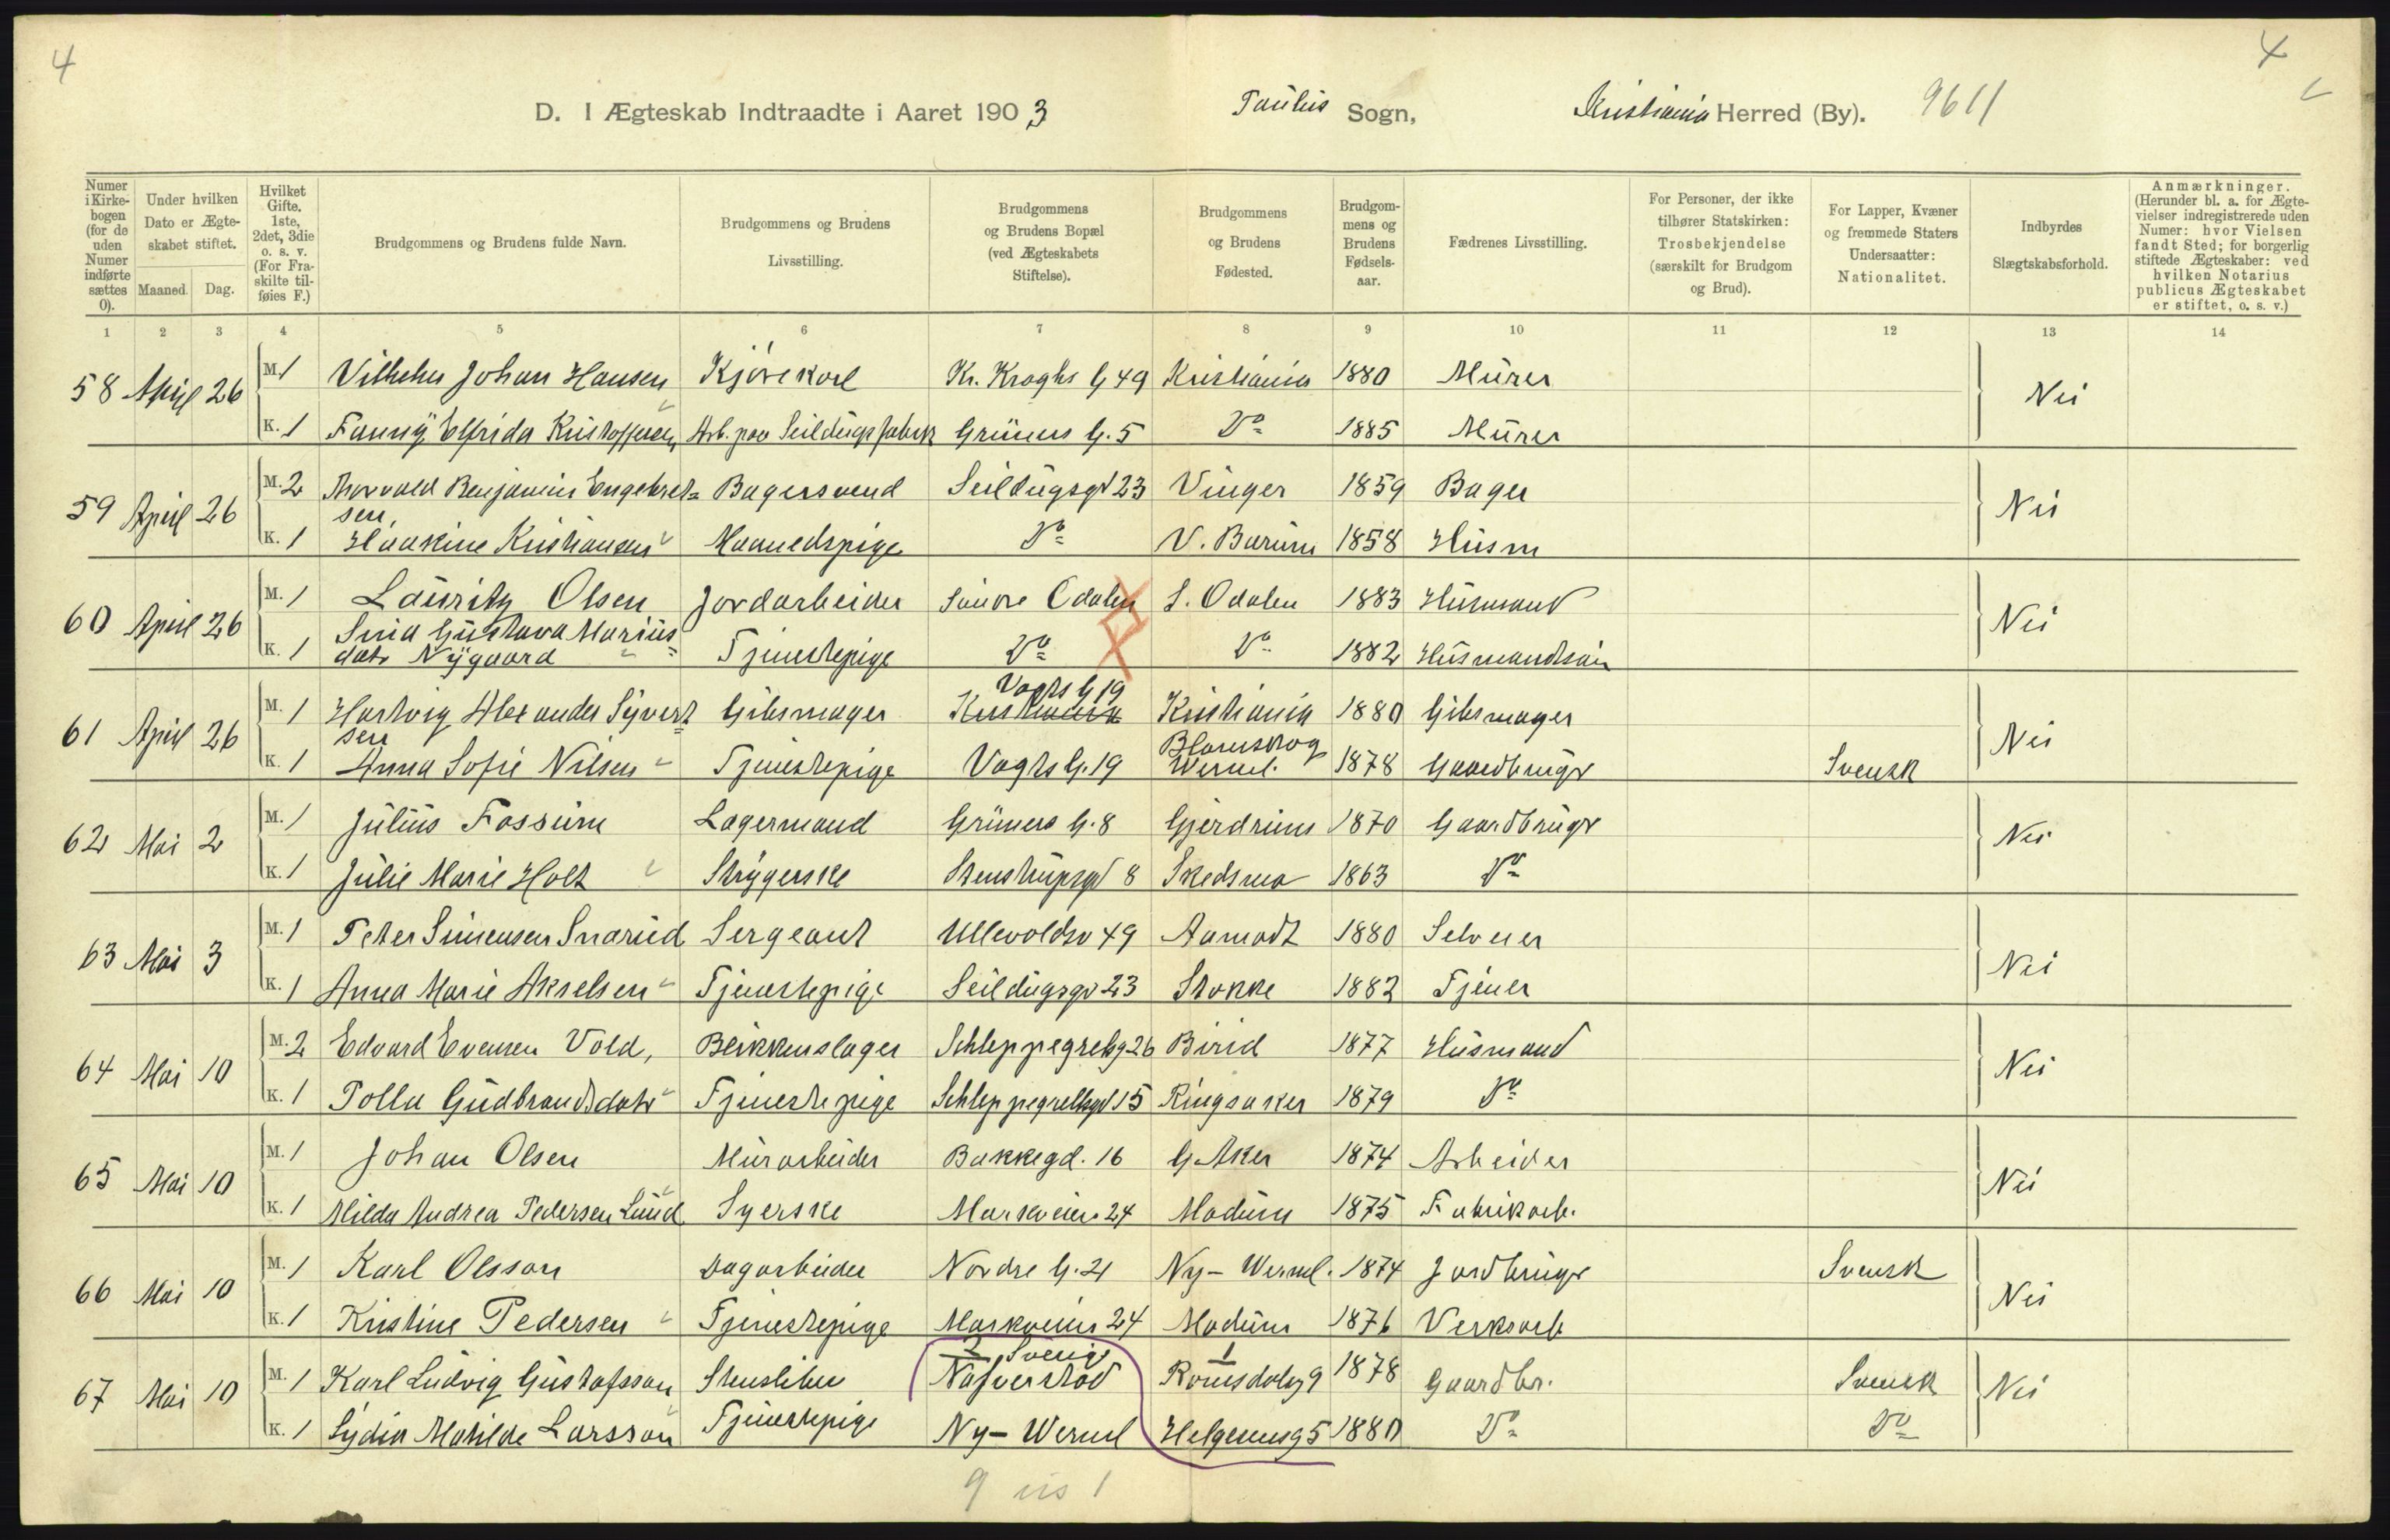 4
4
D. I Ægteskab Indtraadte i Aaret 1903 Paulus Sogn, Kristiania Herred (By). 9611
Numer i Kirke-bogen (for de uden Numer indførte sættes 0).
Under hvilken Dato er Ægte-skabet stiftet.
Maaned. Dag.
Hvilket Gifte. 1ste, 2det, 3die o. s. v. (For Fra-skilte til-føies F.)
Brudgommens og Brudens fulde Navn.
Brudgommens og Brudens Livsstilling.
Brudgommens og Brudens Bopæl (ved Ægteskabets Stiftelse).
Brudgommens og Brudens Fødested.
Brudgom-mens og Brudens Fødsels-aar.
Fædrenes Livsstilling.
For Personer, der ikke tilhører Statskirken: Trosbekjendelse (særskilt for Brudgom og Brud).
For Lapper, Kvæner og fremmede Staters Undersaatter: Nationalitet.
Indbyrdes Slægtskabsforhold.
Anmærkninger. (Herunder bl. a. for Ægte-vielser indregistrerede uden Numer: hvor Vielsen fandt Sted; for borgerlig stiftede Ægteskaber: ved hvilken Notarius publicus Ægteskabet er stiftet, o. s. v.)
1 2 3 4 5 6 7 8 9 10 11 12 13 14
58 April 26 M. 1 Vilhelm Johan Hansen Kjørekarl Kr. Kroghs G 49 Kristiania 1880 Murer Nei
K. 1 Fanny Elfrida Kristoffersen Arb. paa Seildugsfabrik Grüners G. 5 Do 1885 Murer
59 April 26 M. 2 Thorvald Benjamin Engebret= Bagersvend Seildugsgd 23 Vinger 1859 Bager Nei
sen,
K. 1 Haakine Kristiansen Maanedspige Do V. Bærum 1858 Husm
60 April 26 M. 1 Lauritz Olsen Jordarbeider Søndre Odalen S. Odalen 1883 Husmand Nei
Gustava Marius=
K. 1 datr Nygaard Tjenestepige Do Do 1882 Husmandssøn
Vogts G 19
61 April 26 M. 1 Hartvig Alexander Syvert= Gibsmager Kristiania Kristiania 1880 Gibsmager Nei
sen
Blomskog
K. 1 Anna Sofie Nilsen Tjenestepige Vogts G. 19 Werml. 1878 Gaardbruger Svensk
62 Mai 2 M. 1 Julius Fossum Lagermand Grüners G. 8 Gjerdrum 1870 Gaardbruger Nei
K. 1 Julie Marie Holt Strygerske Stenstrupsgd 8 Skedsmo 1863 Do
63 Mai 3 M. 1 Peter Simensen Snarud Sergeant Ullevoldsv 49 Aamodt 1880 Selveier Nei
K. 1 Anna Marie Akselsen Tjenestepige Seildugsgd 23 Stokke 1882 Tjener
64 Mai 10 M. 2 Edvard Evensen Vold, Blikkenslager Schleppegrelsg 26 Birid 1877 Husmand Nei
K. 1 Polla Gudbrandsdatr Tjenestepige Schleppegrellsgd 15 Ringsaker 1879 Do
65 Mai 10 M. 1 Johan Olsen Murarbeider Bakkegd. 16 G. Aker 1874 Arbeider Nei
K. 1 Milda Andrea Pedersen Lund Syerske Markveien 24 Modum 1875 Fabrikarb.
66 Mai 10 M. 1 Karl Olsson Dagarbeider Nordre G. 21 Ny- Werml. 1874 Jordbruger Svensk Nei
K. 1 Kristine Pedersen Tjenestepige Markveien 24 Modum 1876 Verksarb
2 Sverig 1
67 Mai 10 M. 1 Karl Ludvig Gustafsson Stensliber Nafverstad Romsdalsg 9 1878 Gaardbr. Svensk Nei
K. 1 Lydia Matilde Larsson Tjenestepige Ny- Werml Helgesensg 5 1880 Do Do
9 1